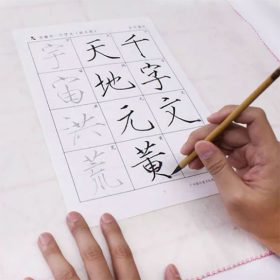 千字文
天地元黃
宇宙洪荒